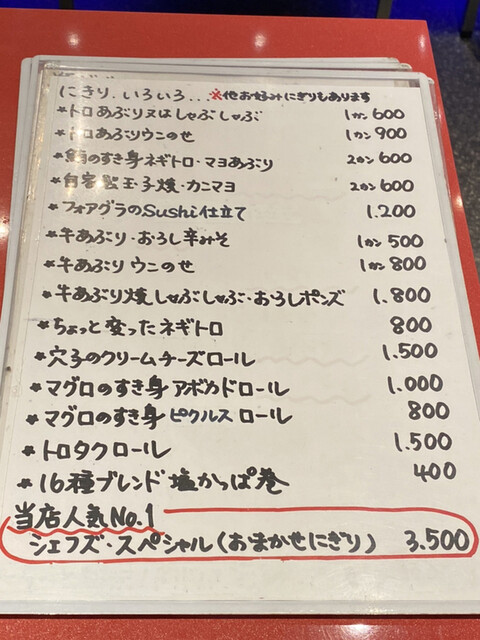 にぎり.いろいろ...※他お好みにぎりもあります
*トロあぶり又はしゃぶしゃぶ 1カン600
*トロあぶりウニのせ 1カン900
*鮪のすき身ネギトロ・マヨあぶり 2カン600
*自家製玉子焼・カニマヨ 2カン600
*フォアグラのSushi仕立て 1.200
*牛あぶり・おろし辛みそ 1カン500
*牛あぶりウニのせ 1カン800
*牛あぶり焼しゃぶしゃぶ・おろしポンズ 1.800
*ちょっと変ったネギトロ 800
*穴子のクリームチーズロール 1.500
*マグロのすき身アボカドロール 1.000
*マグロのすき身ピクルスロール 800
*トロタクロール 1.500
*16種ブレンド塩かっぱ巻 400
当店人気No.1
シェフズ・スペシャル(おまかせにぎり) 3.500